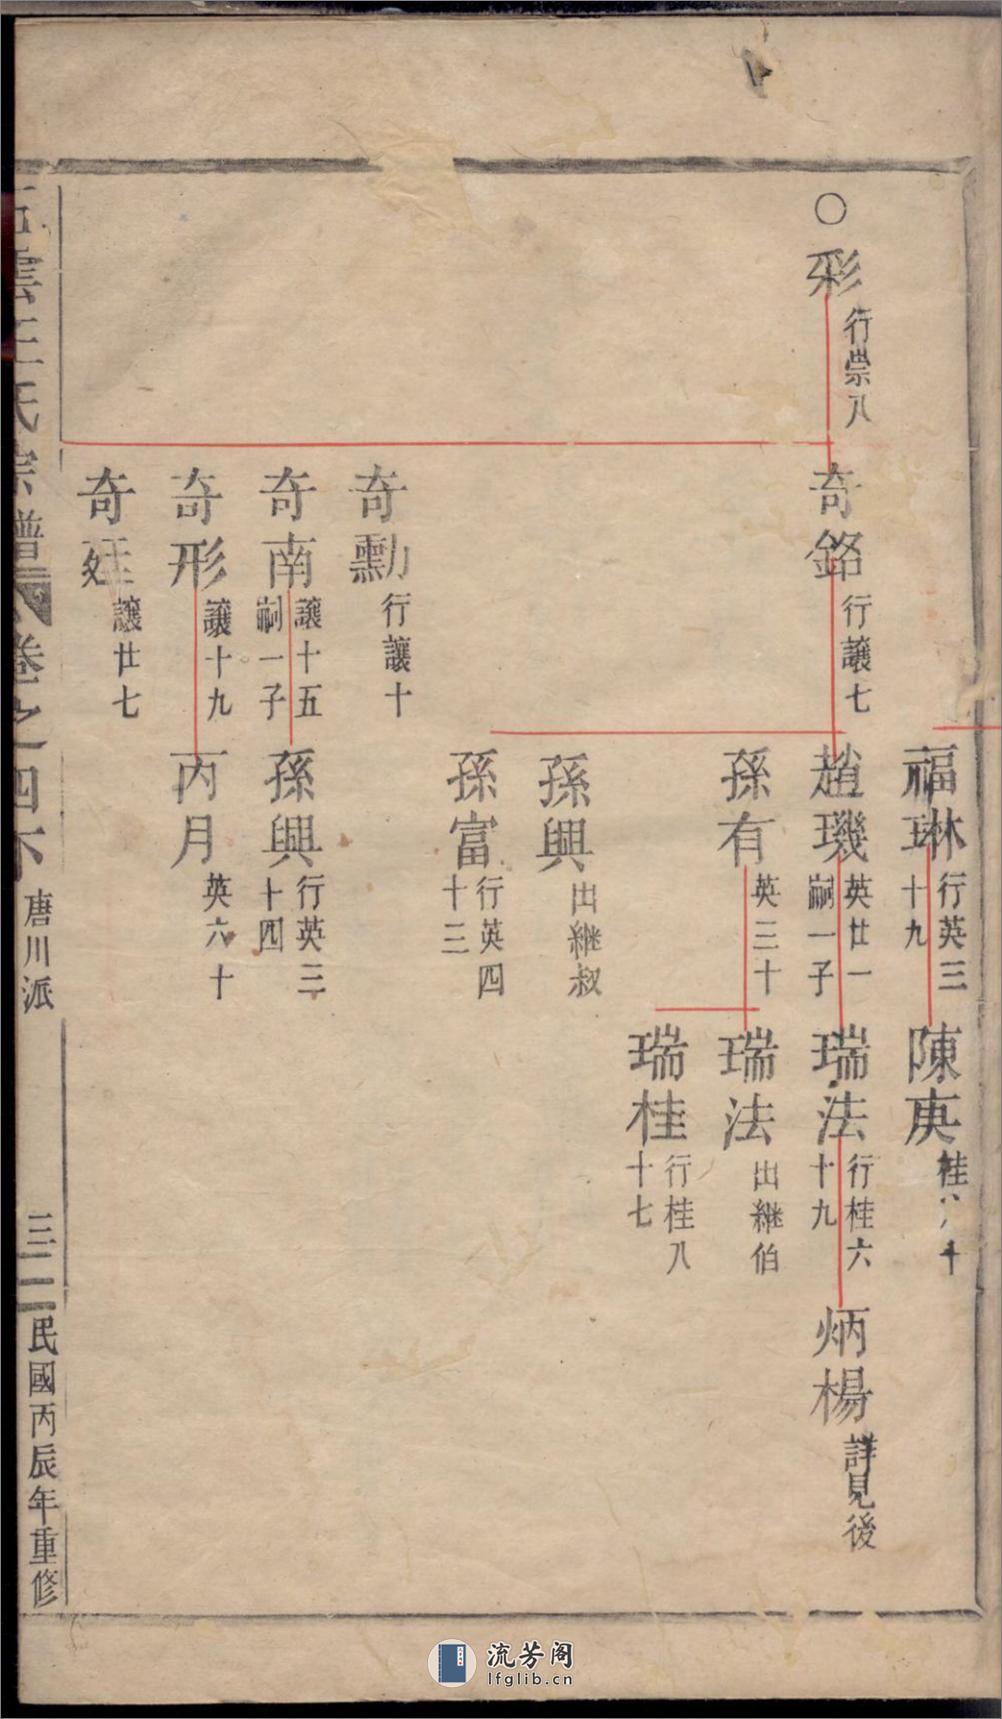 ○彩
行崇八
奇銘
行讓七
奇勳
行讓十
奇南
讓十五
嗣一子
奇形
讓十九
奇廷
讓廿七
福琳
行英三
十九
趙璣
英廿一
嗣一子
孫有
英三十
孫興
出継叔
孫富
行英四
十三
孫興
行英三
十四
丙月
英六十
陳庚
桂八十
瑞法
行桂六
十九
瑞法
出継伯
瑞桂
行桂八
十七
炳楊
詳見後
雲王氏宗譜
卷之四下
唐川派
民國丙辰年重修
流芳阁
lfglib.cn